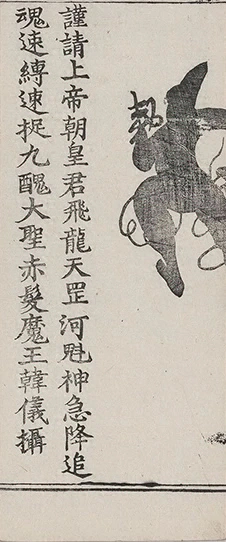 謹請上帝朝皇君飛龍天罡河魁神急降追
魂速縛速捉九醜大聖赤髮魔王韓儀攝